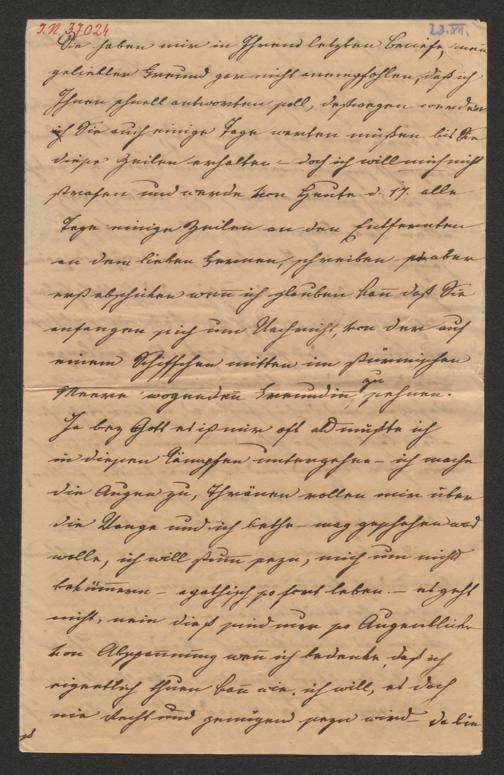 I.N. 37024
23. XII.
Sie haben mir in Ihrem letzten Briefe, mein
geliebter Freund gar nicht anempfohlen, daß ich
Ihnen schnell antworten soll, deßwegen werden
Sie auch einige Tage warten müßen bis Sie
diese Zeilen erhalten – doch ich will mich nicht
strafen und werde von Heute d. 17. alle
Tage einige Zeilen an den Entfernten
an den lieben Fernen, schreiben – aber
erst abschicken wenn ich glauben kan̄ daß Sie
anfangen sich um Nachricht, von der auf
einem Schiffchen mitten im stürmischen
Meere wogenden Freundin, zu sehnen.
Ja bey Gott es ist mir oft als müßte ich
in diesen Kämpfen untergehen – ich mache
die Augen zu, Thränen rollen mir über
die Wange und ich bethe – mag geschehen was
wolle, ich will stum̄ seyn, mich um nichts
bekümmern – apathisch so fort leben. – es geht
nicht, nein dieß sind nur so Augenblicke
von Abspannung wen̄ ich bedenke, daß ich
eigentlich thuen kan̄ wie ich will, es doch
nie Recht und genügend seyn wird – da bin